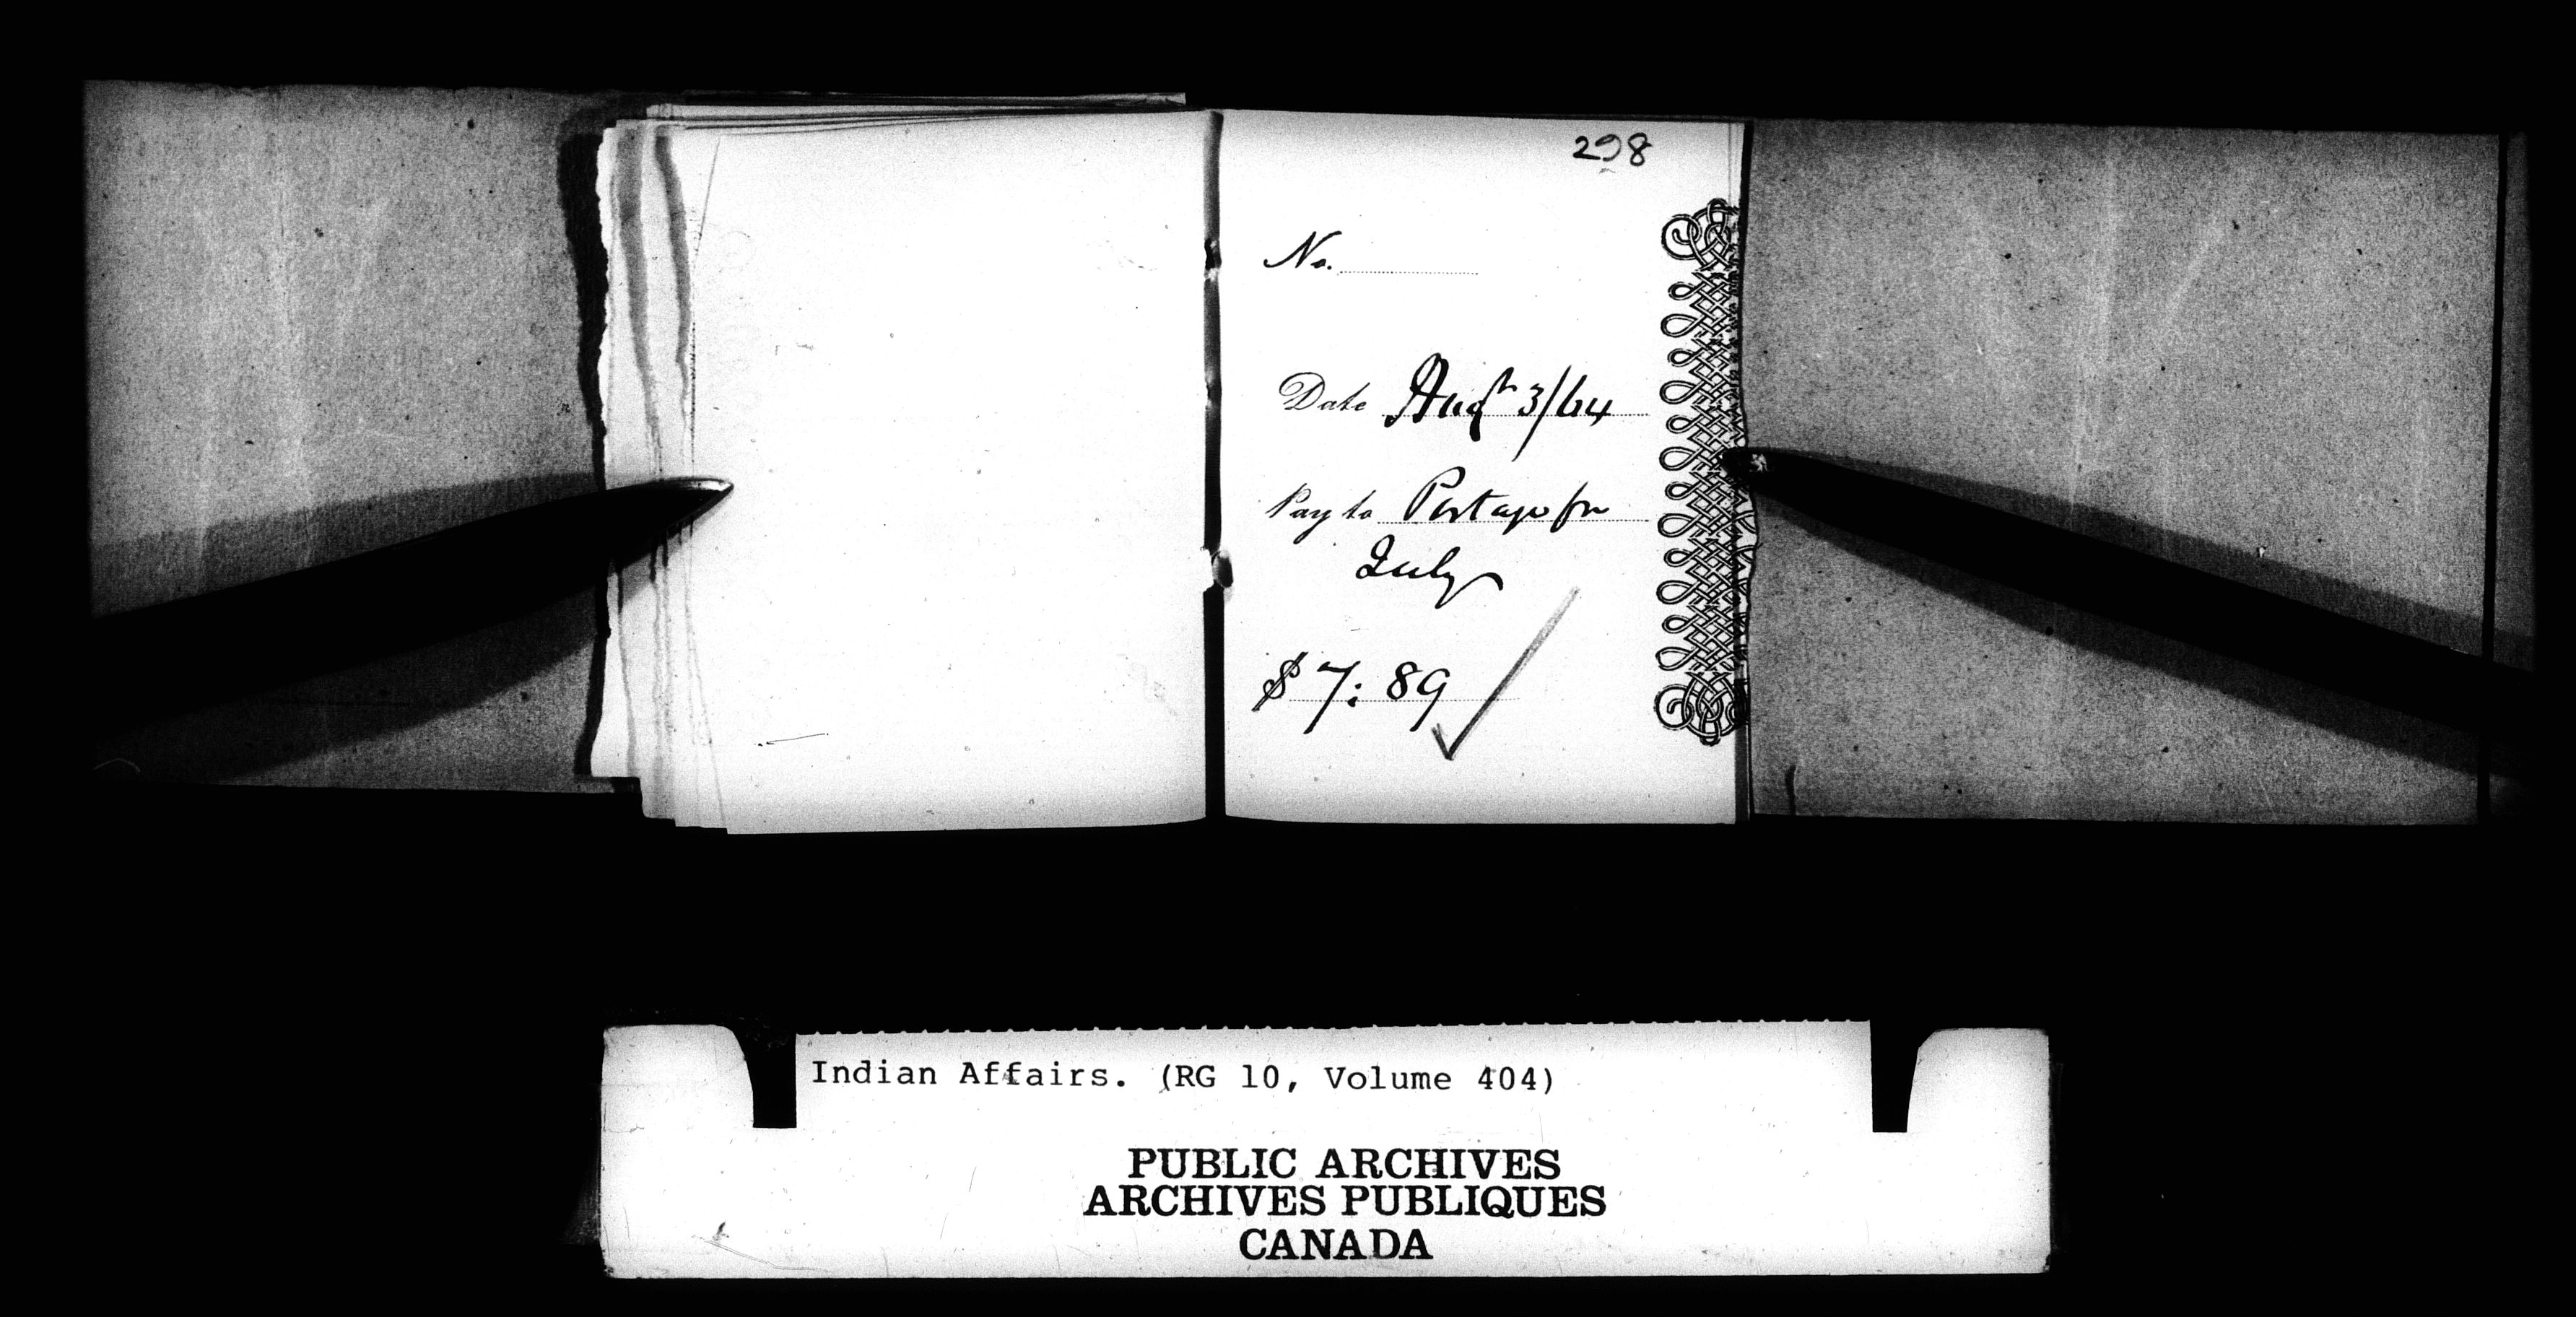 298
No.
Date Augt 3/64
Pay to Postage for
July
$ 7: 89
Indian Affairs. (RG 10, Volume 404)
PUBLIC ARCHIVES
ARCHIVES PUBLIQUES
CANADA